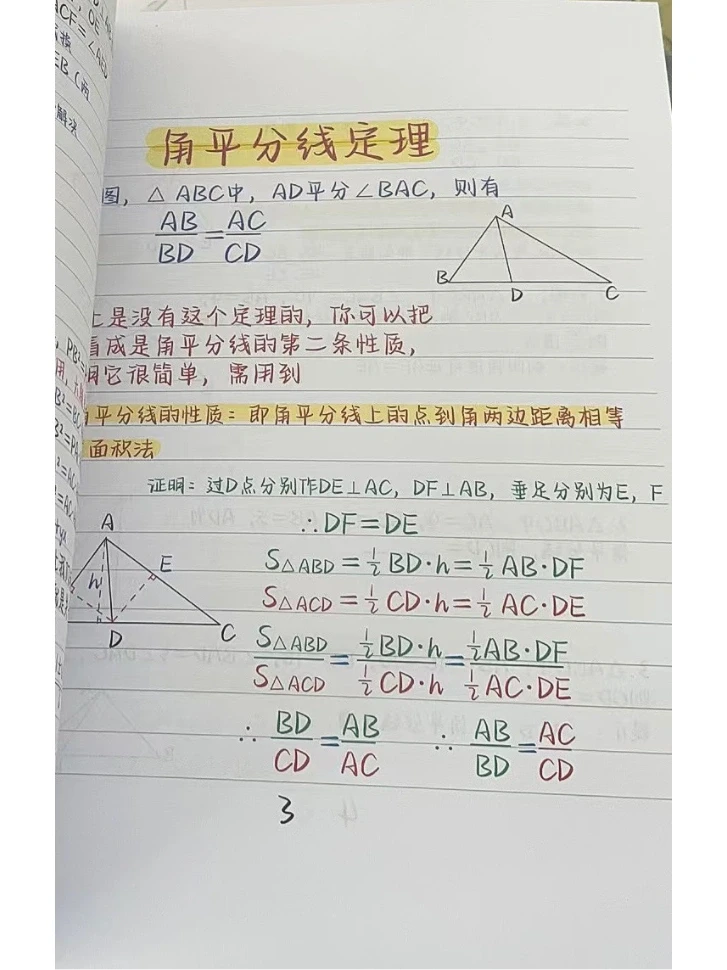 角平分线定理
图，△ABC中，AD平分∠BAC，则有
AB/BD=AC/CD
A
B
D
C
上是没有这个定理的，你可以把
看成是角平分线的第二条性质，
它很简单，需用到
角平分线的性质：即角平分线上的点到角两边距离相等
面积法
证明：过D点分别作DE⊥AC，DF⊥AB，垂足分别为E，F
∴DF=DE
A
E
h
D
C
S△ABD=½BD·h=½AB·DF
S△ACD=½CD·h=½AC·DE
S△ABD/S△ACD=½BD·h/½CD·h=½AB·DF/½AC·DE
∴BD/CD=AB/AC ∴AB/BD=AC/CD
3